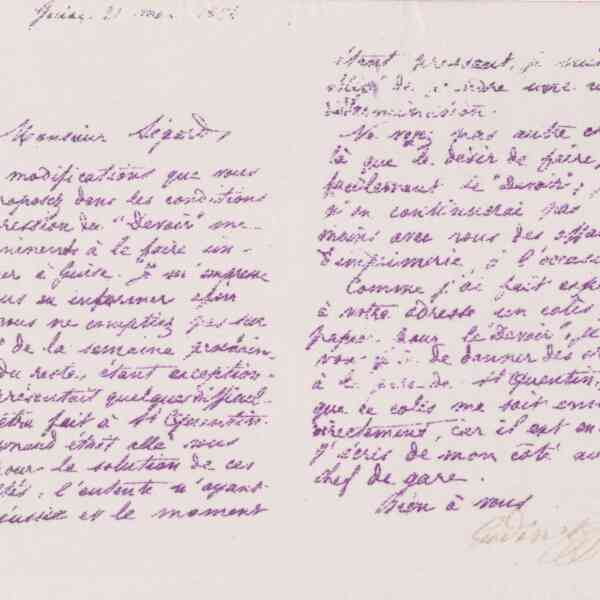 Guise, 21
Monsieur Ségard,
modifications que vous
proposez dans les conditions
pression du "Devoir" me
à le faire im-
mer à Guise. Je m'empresse
vous en informer afin
vous ne comptiez pas sur
de la semaine prochain
Du reste, étant exception-
présentait quelques diffi
être fait à St Quentin.
était allé vous
pour la solution de ces
l'entente n'ayant
réussie et le moment
étant pressant, je
obligé de prendre une
détermination.
Ne voyez pas autre
là que le désir de faire
facilement le "Devoir";
n'en continuerai pas
moins avec vous des affai
d'imprimerie, à l'occasi
Comme j'ai fait
à votre adresse un colis
papier pour le "Devoir",
de donner des
à la gare de St Quentin,
que ce colis me soit
directement, car il est
J'écris de mon côté au
chef de gare.
Bien à vous
Godin